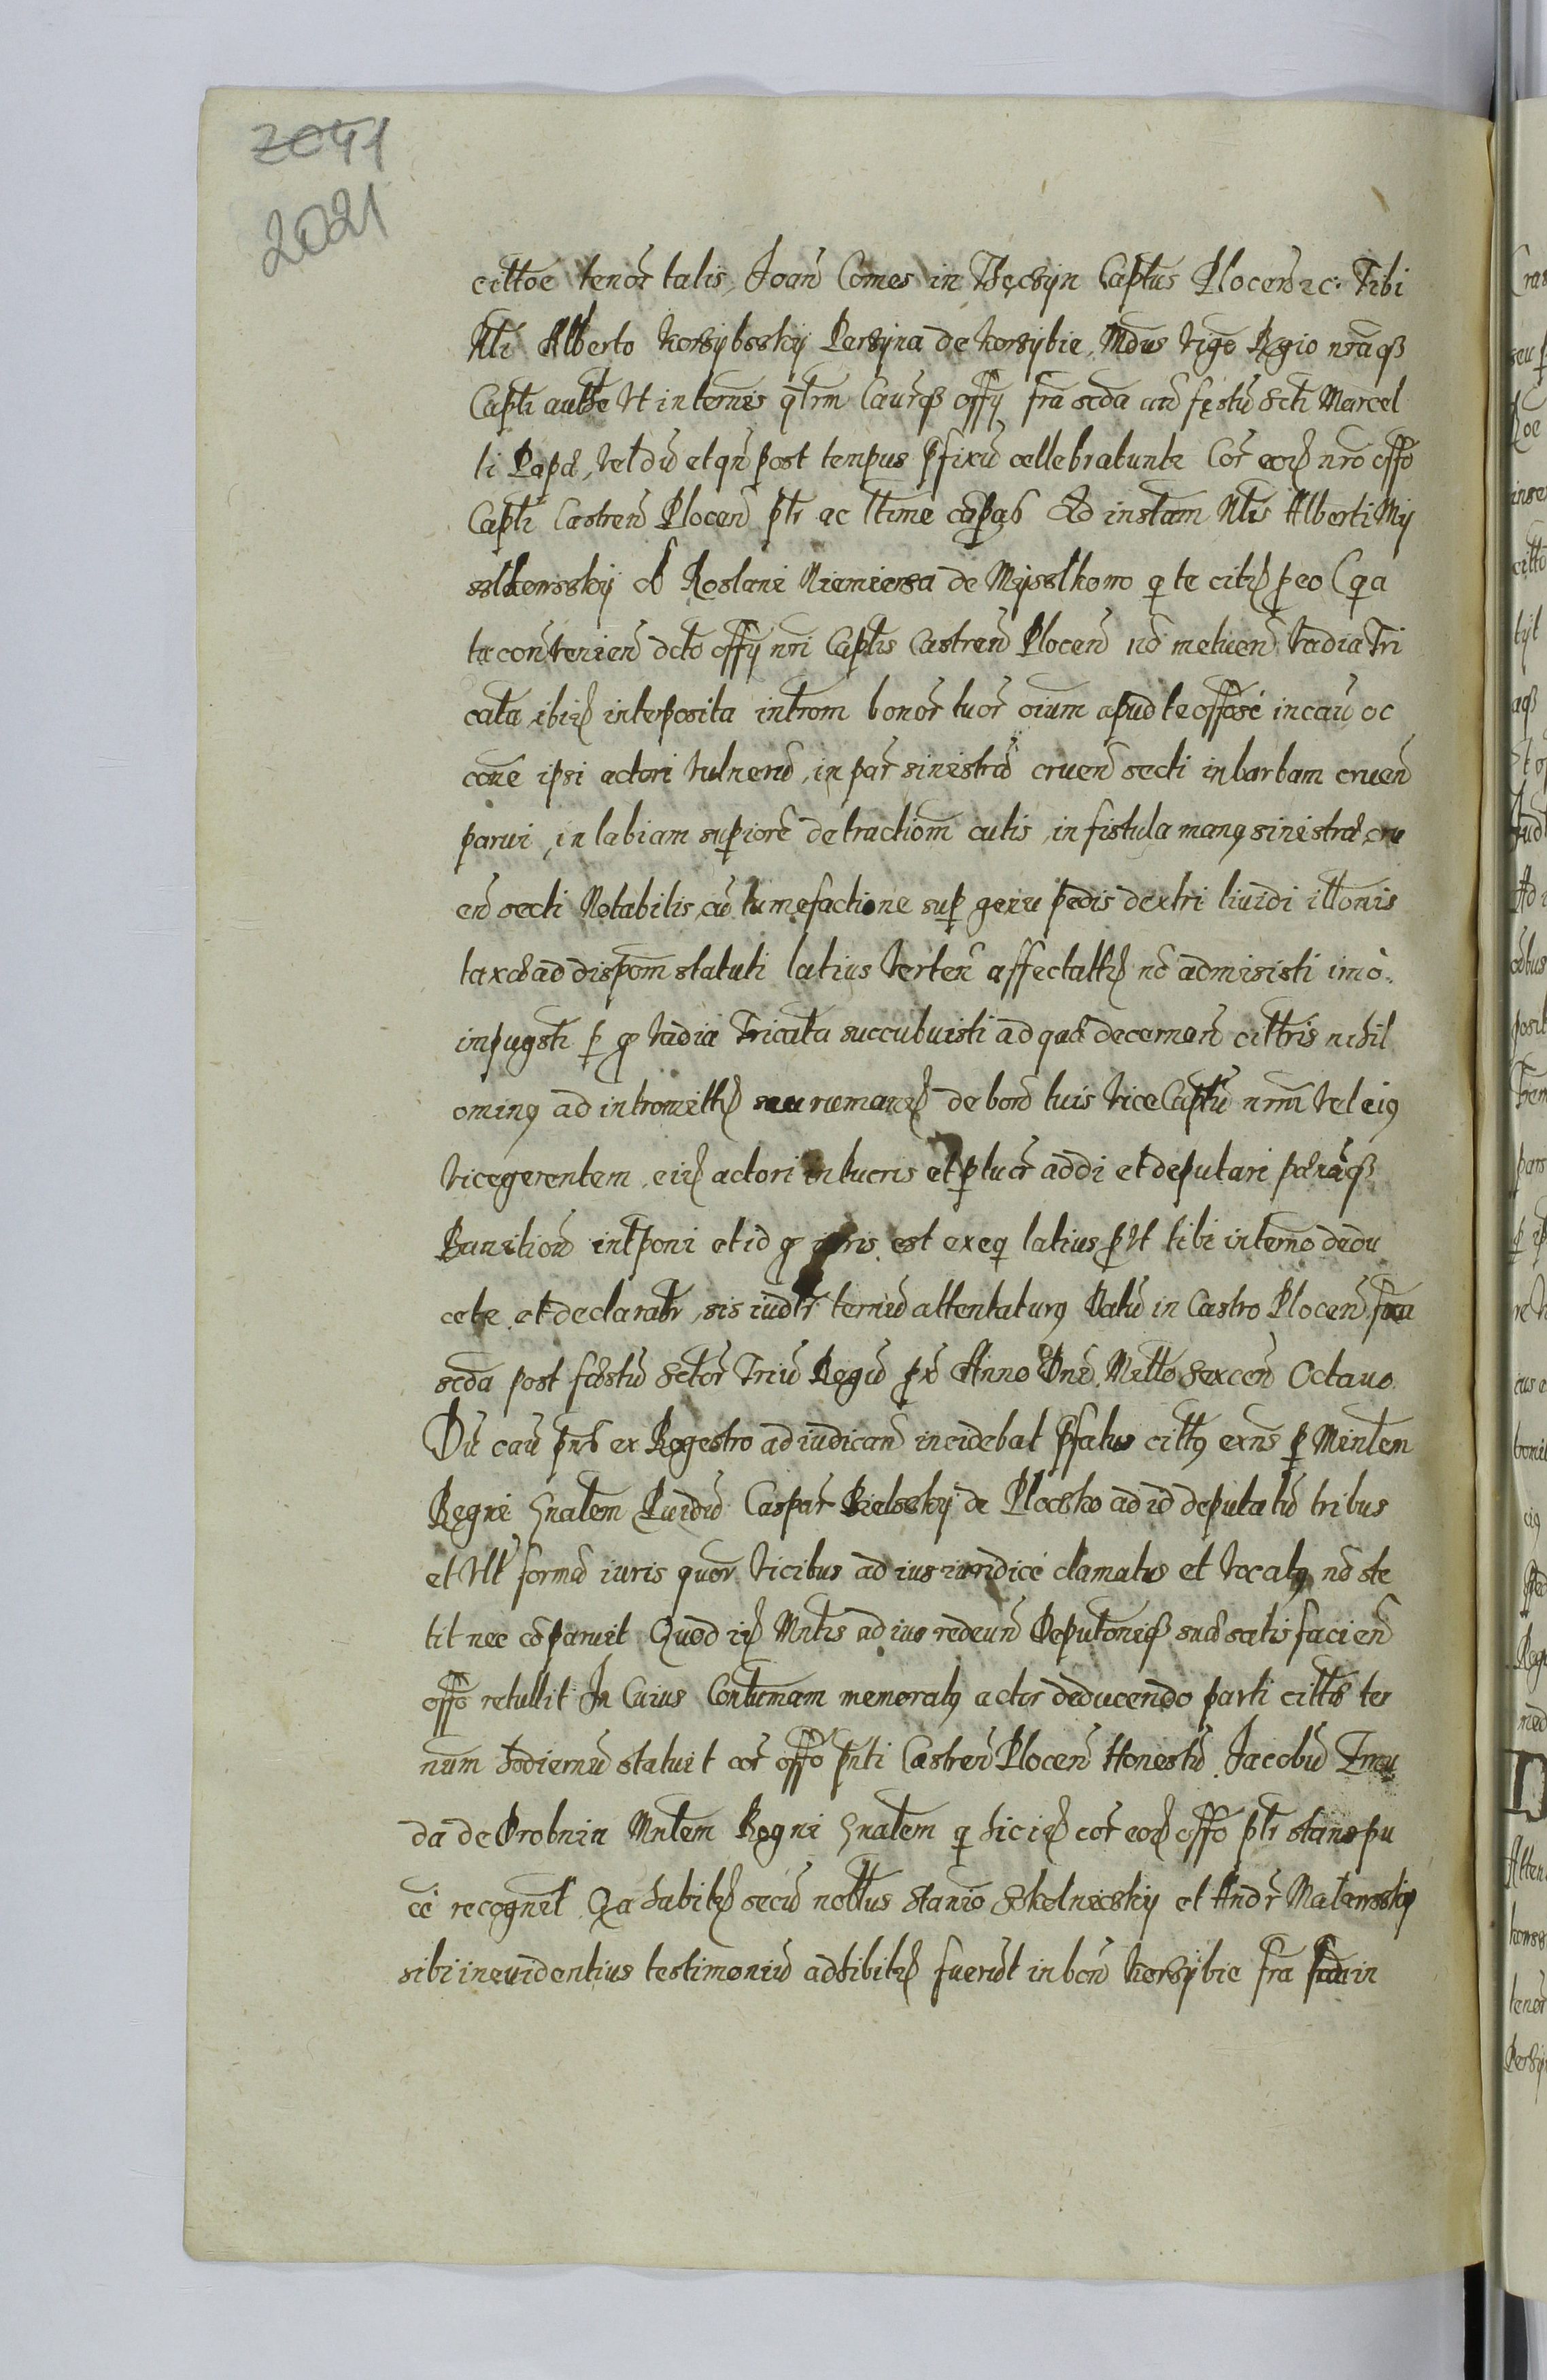 2041
2021
cittoe tenor talis, Joan Comes in Tħęczÿn Captus Plocen̄ ꝛc: Tibi
Nli Alberto Korzÿbskÿ Perzÿna de Korzÿbie, Mdus Vigō Regio nrāqȝ
Capti autħe Vt in ternīs qtrm Caurqȝ offÿ fra scda an̄ festū Scti Marcel
li Papæ, Vel dū et qn̄ post tempus pfixū cellebrabuntr Cor̄ eod nro offo
Capti Castren̄ Plocen̄ ptr ac ltime cōpas Ad instam Nlis Alberti Mÿ
sslkowskÿ Roslani Niemierza de Mÿsslkowo q te citd p eo Cqa
tu conuenien̄ dcto offÿ nri Captis Castren̄ Plocen̄ nō metuen̄ Vadia Tri
cata, ibid interposita introm bonor̄ tuor̄ oium apud te offose in cau oc
cone ipsi actori Vulnerū, in par̄ sinistra cruen̄ secti in barbam cruen̄
parui, in labiam supiore detractiom cutis, in fistula manꝰ sinistræ cru
en̄ secti Notabilis, cū tumefactione sup genu pedis dextri liuidi ittonis
taxæ ad dispom statuti latius Verten̄ affectattd nō admisisti imò.
impugsti p q Vadia Tricata succubuisti ad quæ decernen̄ cittris nihil
ominꝰ ad intromittd de bon̄ tuis Vice Captū nrm̄ Vel eiꝰ
Vicegerentem, eid actori in lucris et p lucr̄ addi et deputari pænāqȝ
Banition̄ intponi et id q iuris est exeq latius pVt tibi in terno dedu
cetr et declarabr, sis iudtr ternū attentaturꝰ Datū in Castro Plocen̄ fra
scda post festū Sctor̄ Triū Regū px Anno Dni Millo Sexcen̄ Octauo
Dū cau pns ex Regestro ad iudican̄ incidebat pfatus cittꝰ exns p Mintem
Regni Gnalem Puidū Caspar̄ Bielskÿ de Plocsko ad id deputatū tribus
et Vlt formā iuris quor̄ Vicibus ad ius iuridice clamatus et Vocatꝰ nō ste
tit nec cōparuit Quod id Mntis ad ius redeun̄ Deputoniqȝ suæ satisfacien̄
offo retullit In Cuius Contumam memoratꝰ actor deducendo parti cittæ ter
num hodiernū statuit cor̄ offo pnti Castren̄ Plocen̄ Honestū Jacobū
da de Drobnin Mntem Regni Gnalem q hic id cor̄ eod offo ptr stans pu
ce recognit Qa habitd secū nobbus Stanio Szkolnicskÿ et Andr̄ Malewskÿ
sibi in euidentius testimoniū adhibitd fuerit in bon̄ Korzÿbie fra scda in